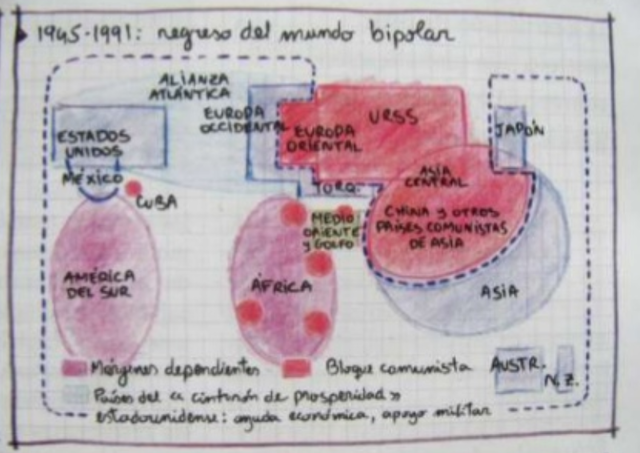 1945-1991: regreso del mundo bipolar
ALIANZA
ATLÁNTICA
ESTADOS
UNIDOS
MÉXICO
CUBA
AMÉRICA
DEL SUR
EUROPA
OCCIDENTAL
EUROPA
ORIENTAL
URSS
TURQ.
MEDIO
ORIENTE
y GOLFO
ÁFRICA
JAPÓN
ASIA
CENTRAL
CHINA y OTROS
PAÍSES COMUNISTAS
DE ASIA
ASIA
AUSTR.
N.Z.
Márgenes dependientes
Bloque comunista
Países del «cinturón de prosperidad»
estadounidense: ayuda económica, apoyo militar